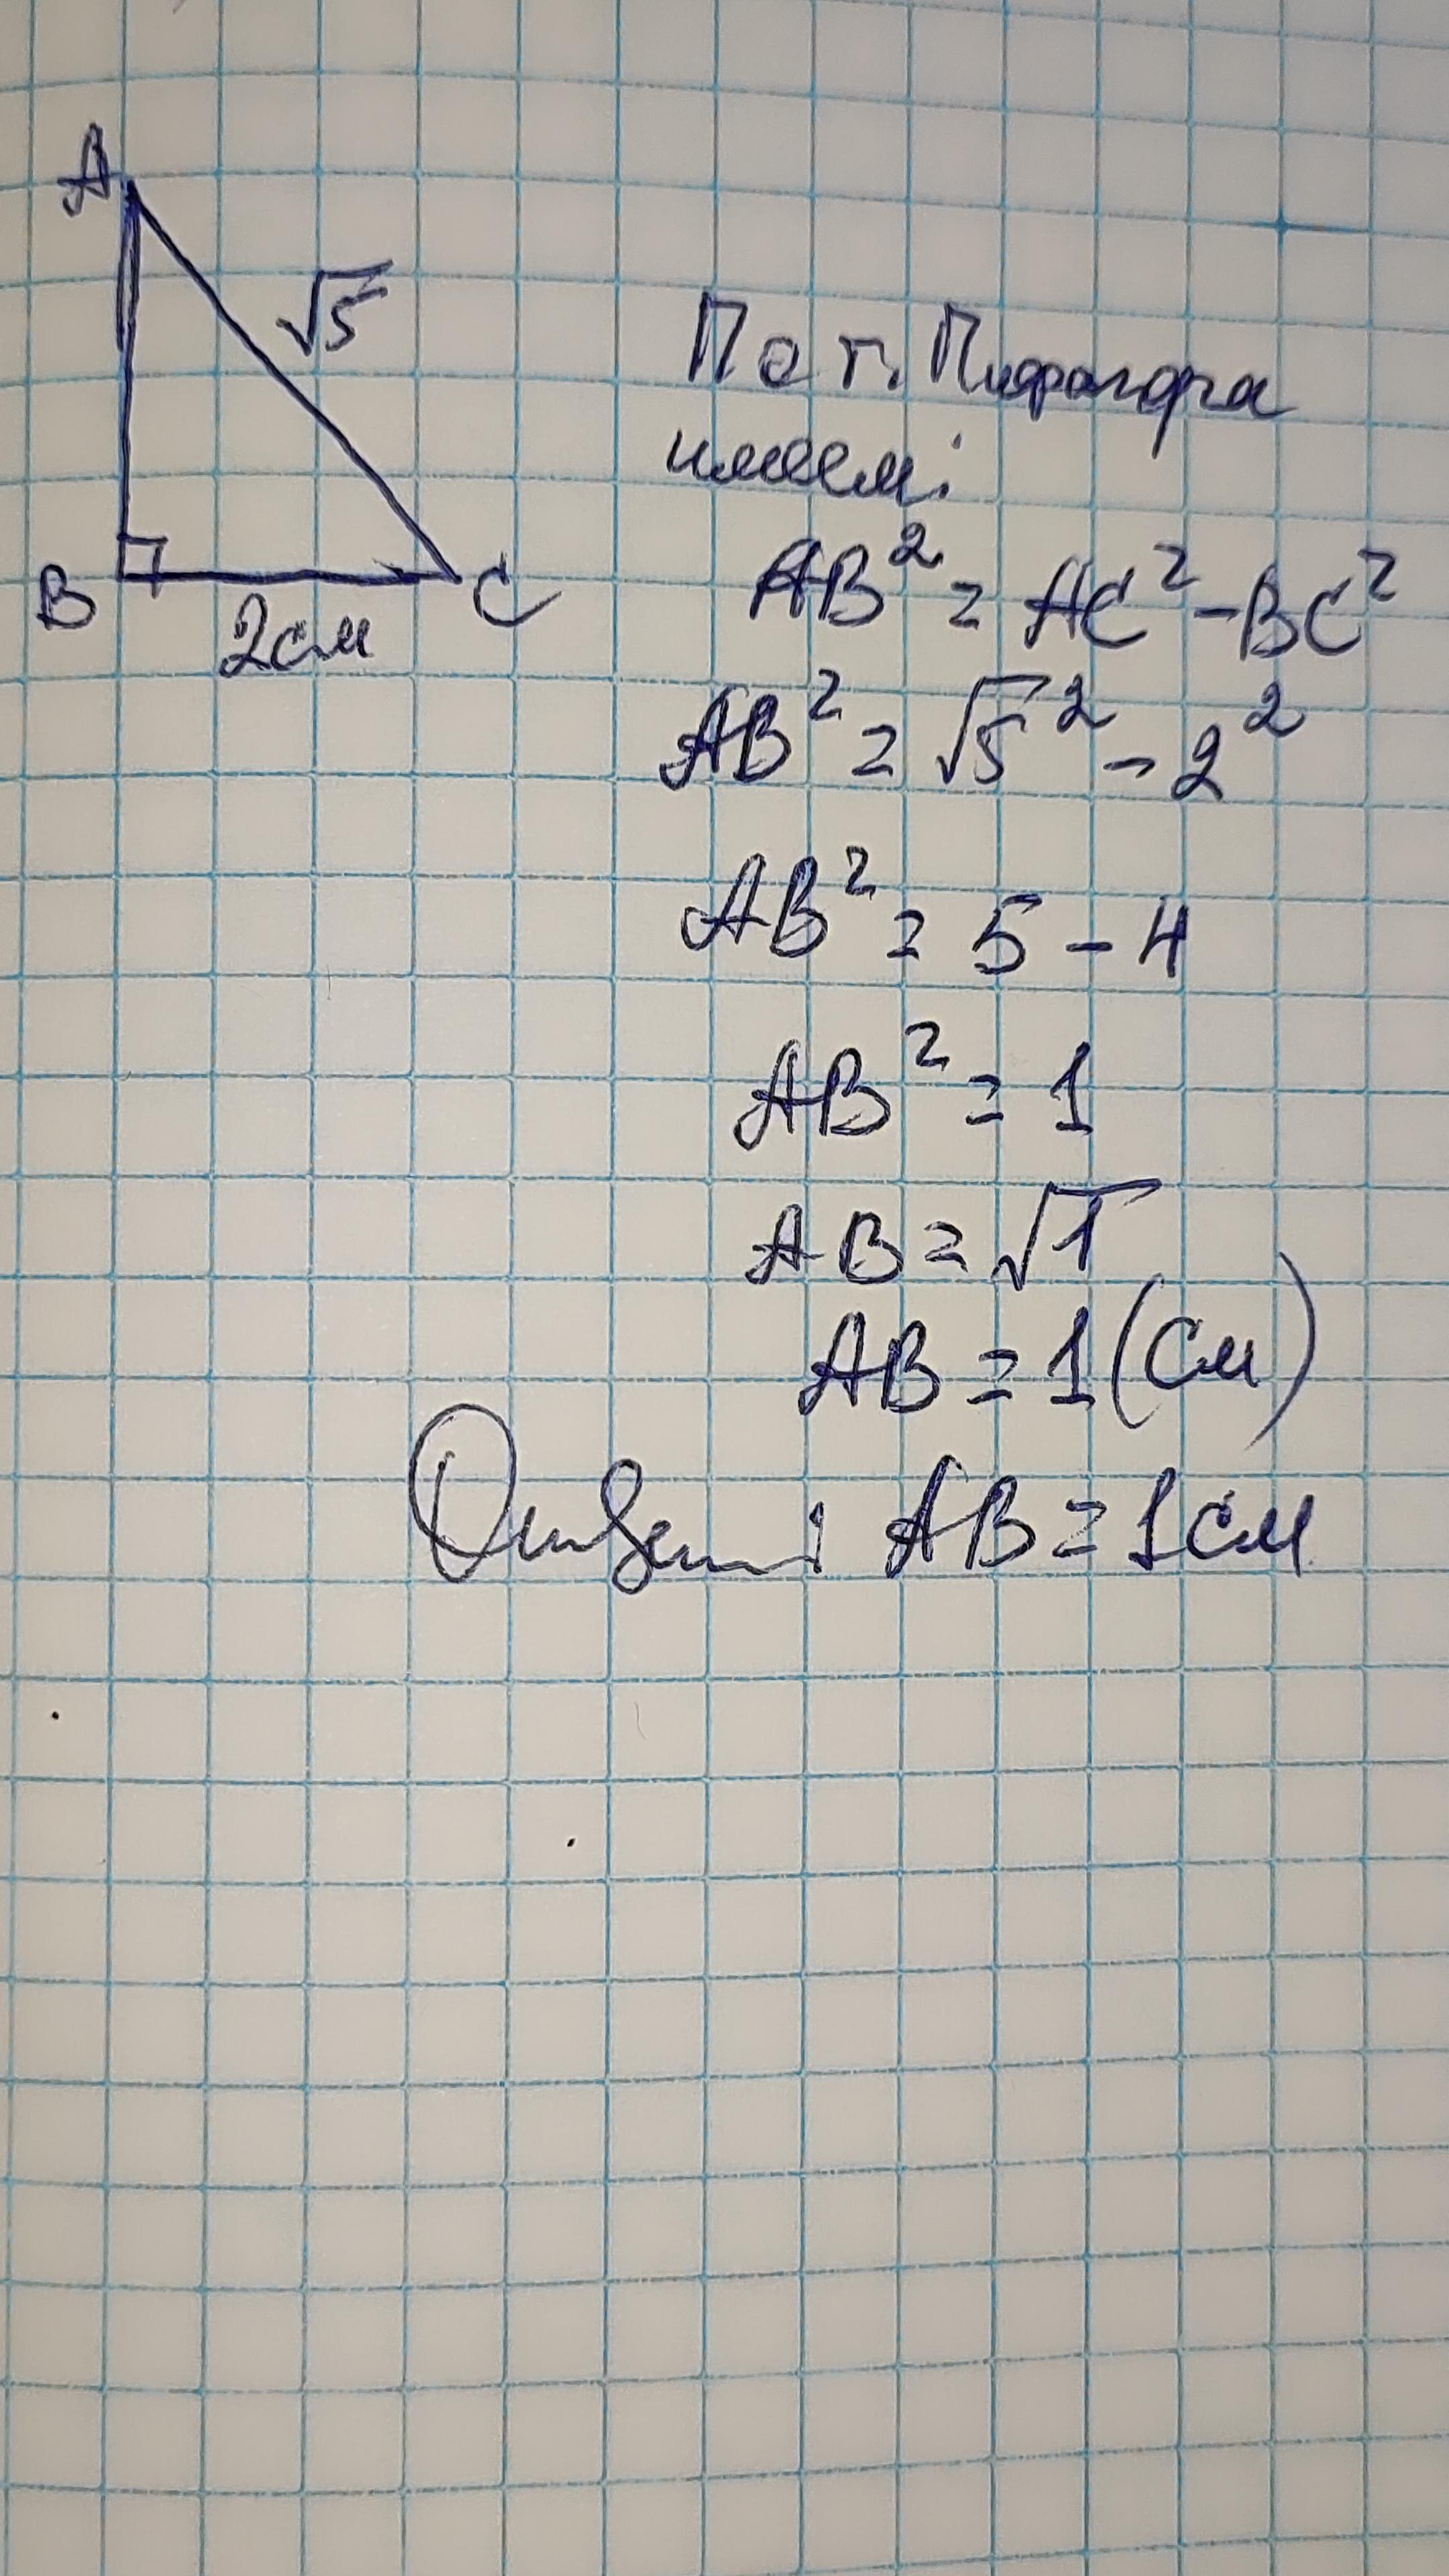 A
√5
B
C
2см
По т. Пифагора
имеем:
AB² = AC² - BC²
AB² = √5² - 2²
AB² = 5 - 4
AB² = 1
AB = √1
AB = 1 (см)
Ответ: AB = 1см